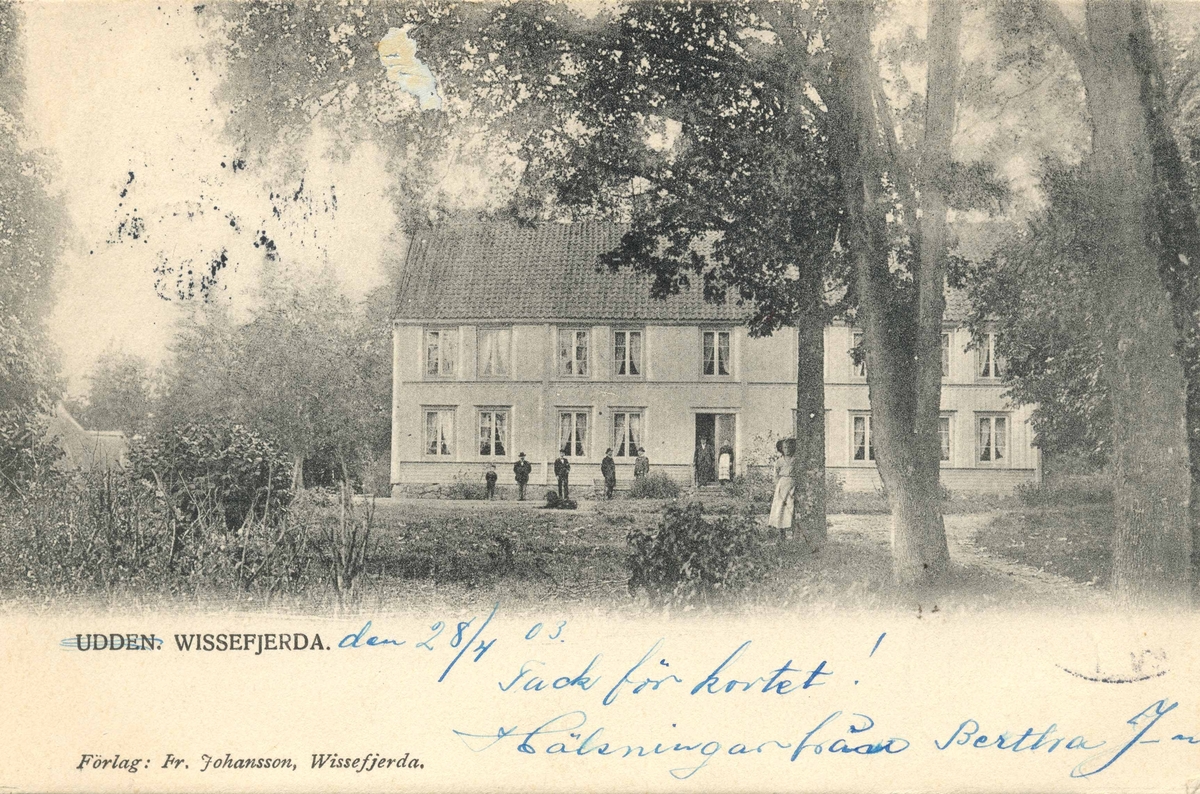 UDDEN. WISSEFJERDA. den 28/4 03.
Tack för kortet!
Hälsningar från Bertha J-n
Förlag: Fr. Johansson, Wissefjerda.